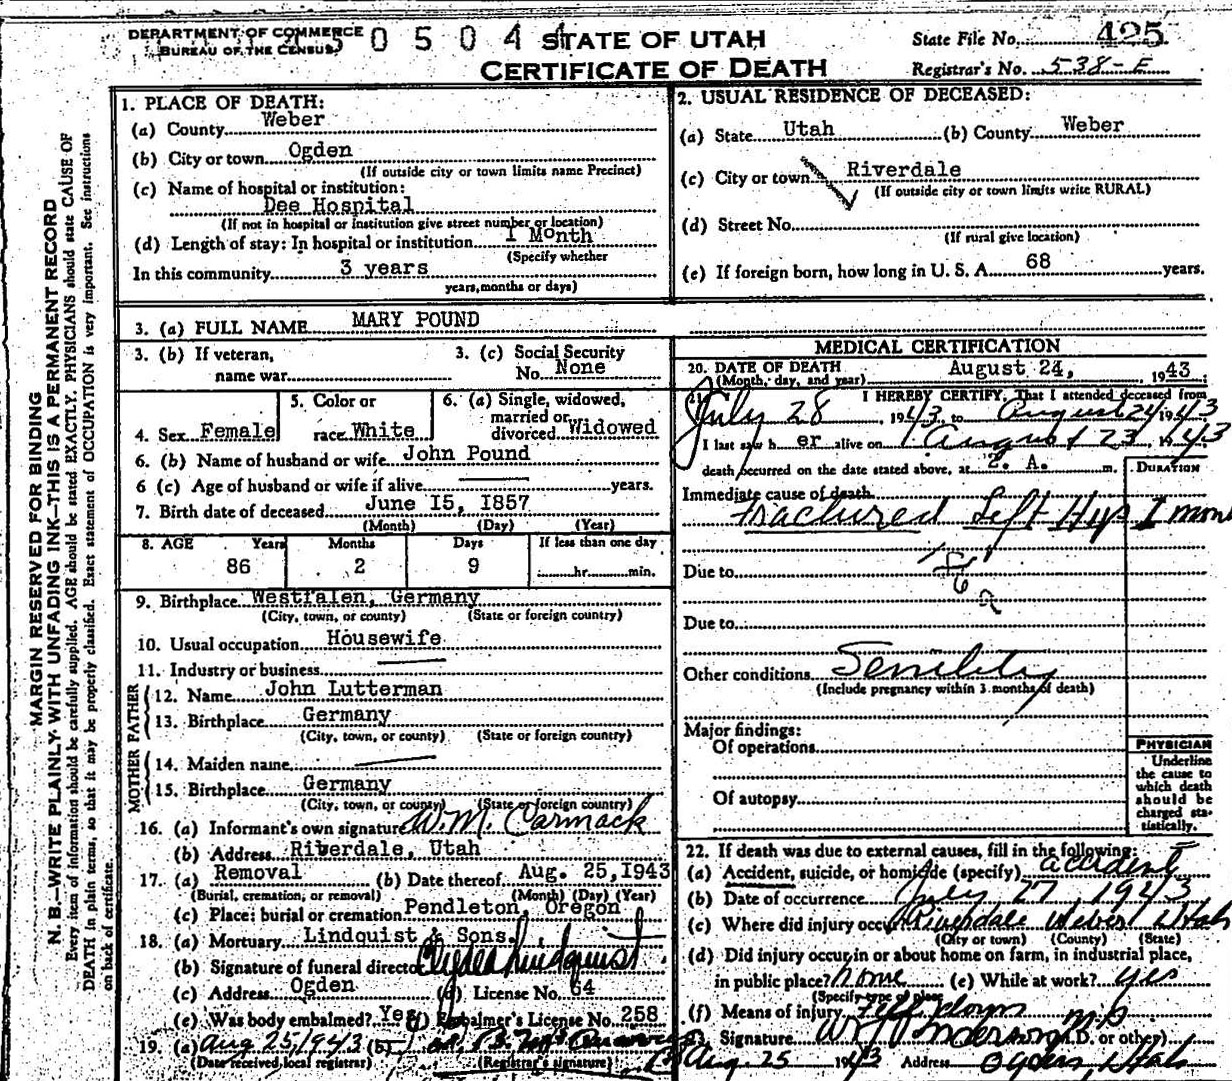 DEPARTMENT OF COMMERCE
BUREAU OF THE CENSUS
0 5 0 4
STATE OF UTAH
CERTIFICATE OF DEATH
State File No. 425
Registrar's No. 538-E
MARGIN RESERVED FOR BINDING
N. B.—WRITE PLAINLY WITH UNFADING INK—THIS IS A PERMANENT RECORD
Every item of information should be carefully supplied. AGE should be stated EXACTLY. PHYSICIANS should state CAUSE OF
DEATH in plain terms, so that it may be properly classified. Exact statement of OCCUPATION is very important. See instructions
on back of certificate.
1. PLACE OF DEATH:
(a) County Weber
(b) City or town Ogden
(If outside city or town limits name Precinct)
(c) Name of hospital or institution:
Dee Hospital
(If not in hospital or institution give street number or location)
(d) Length of stay: In hospital or institution 1 Month
(Specify whether
In this community 3 years
years, months or days)
2. USUAL RESIDENCE OF DECEASED:
(a) State Utah (b) County Weber
(c) City or town Riverdale
(If outside city or town limits write RURAL)
(d) Street No.
(If rural give location)
(e) If foreign born, how long in U. S. A. 68 years.
3. (a) FULL NAME MARY POUND
3. (b) If veteran, name war
3. (c) Social Security No. None
4. Sex Female
5. Color or race White
6. (a) Single, widowed, married or divorced Widowed
6. (b) Name of husband or wife John Pound
6 (c) Age of husband or wife if alive years.
7. Birth date of deceased June 15, 1857
(Month) (Day) (Year)
8. AGE Years Months Days If less than one day
86 2 9 hr. min.
9. Birthplace Westfalen, Germany
(City, town, or county) (State or foreign country)
10. Usual occupation Housewife
11. Industry or business
FATHER
12. Name John Lutterman
13. Birthplace Germany
(City, town, or county) (State or foreign country)
MOTHER
14. Maiden name
15. Birthplace Germany
(City, town, or county) (State or foreign country)
16. (a) Informant's own signature W.M. Carmack
(b) Address Riverdale, Utah
17. (a) Removal (b) Date thereof Aug. 25, 1943
(Burial, cremation, or removal) (Month) (Day) (Year)
(c) Place: burial or cremation Pendleton, Oregon
18. (a) Mortuary Lindquist & Sons.
(b) Signature of funeral director Clyde Lindquist
(c) Address Ogden (d) License No. 64
(e) Was body embalmed? Yes (f) Embalmer's License No. 258
19. (a) Aug 25, 1943 (b)
(Date received local registrar) (Registrar's signature)
MEDICAL CERTIFICATION
20. DATE OF DEATH
(Month, day, and year) August 24, 1943
21. I HEREBY CERTIFY, That I attended deceased from
July 28, 1943 to August 24 1943
I last saw her alive on August 23 1943
death occurred on the date stated above, at 2. A. m.
DURATION
Immediate cause of death
fractured Left Hip 1 mon
Due to
Due to
Other conditions Senility
(Include pregnancy within 3 months of death)
Major findings:
Of operations
Of autopsy
PHYSICIAN
Underline
the cause to
which death
should be
charged sta-
tistically.
22. If death was due to external causes, fill in the following:
(a) Accident, suicide, or homicide (specify) accident
(b) Date of occurrence July 27 1943
(c) Where did injury occur? Riverdale Weber Utah
(City or town) (County) (State)
(d) Did injury occur in or about home on farm, in industrial place,
in public place? home (e) While at work? yes
(Specify type of place)
(f) Means of injury fell down
23. Signature Anderson M.D. (M.D. or other)
Aug 25 1943 Address Ogden, Utah